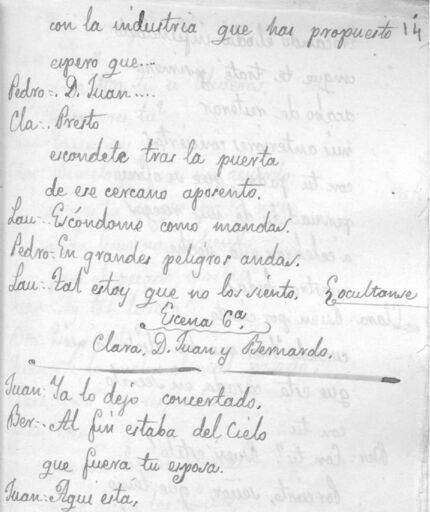 con la industria que has propuesto 14
espero que...
Pedro:. D. Juan....
Cla:. Presto
escondete tras la puerta
de ese cercano aposento.
Lau:. Escóndome como mandas.
Pedro:. En grandes peligros andas.
Lau:. Tal estoy que no los siento. Ẹocultanse
Escena 6ª
Clara, D. Juan y Bernardo.
Juan: Ya lo dejo concertado.
Ber:. Al fin estaba del Cielo
que fuera tu esposa.
Juan: Aqui esta,